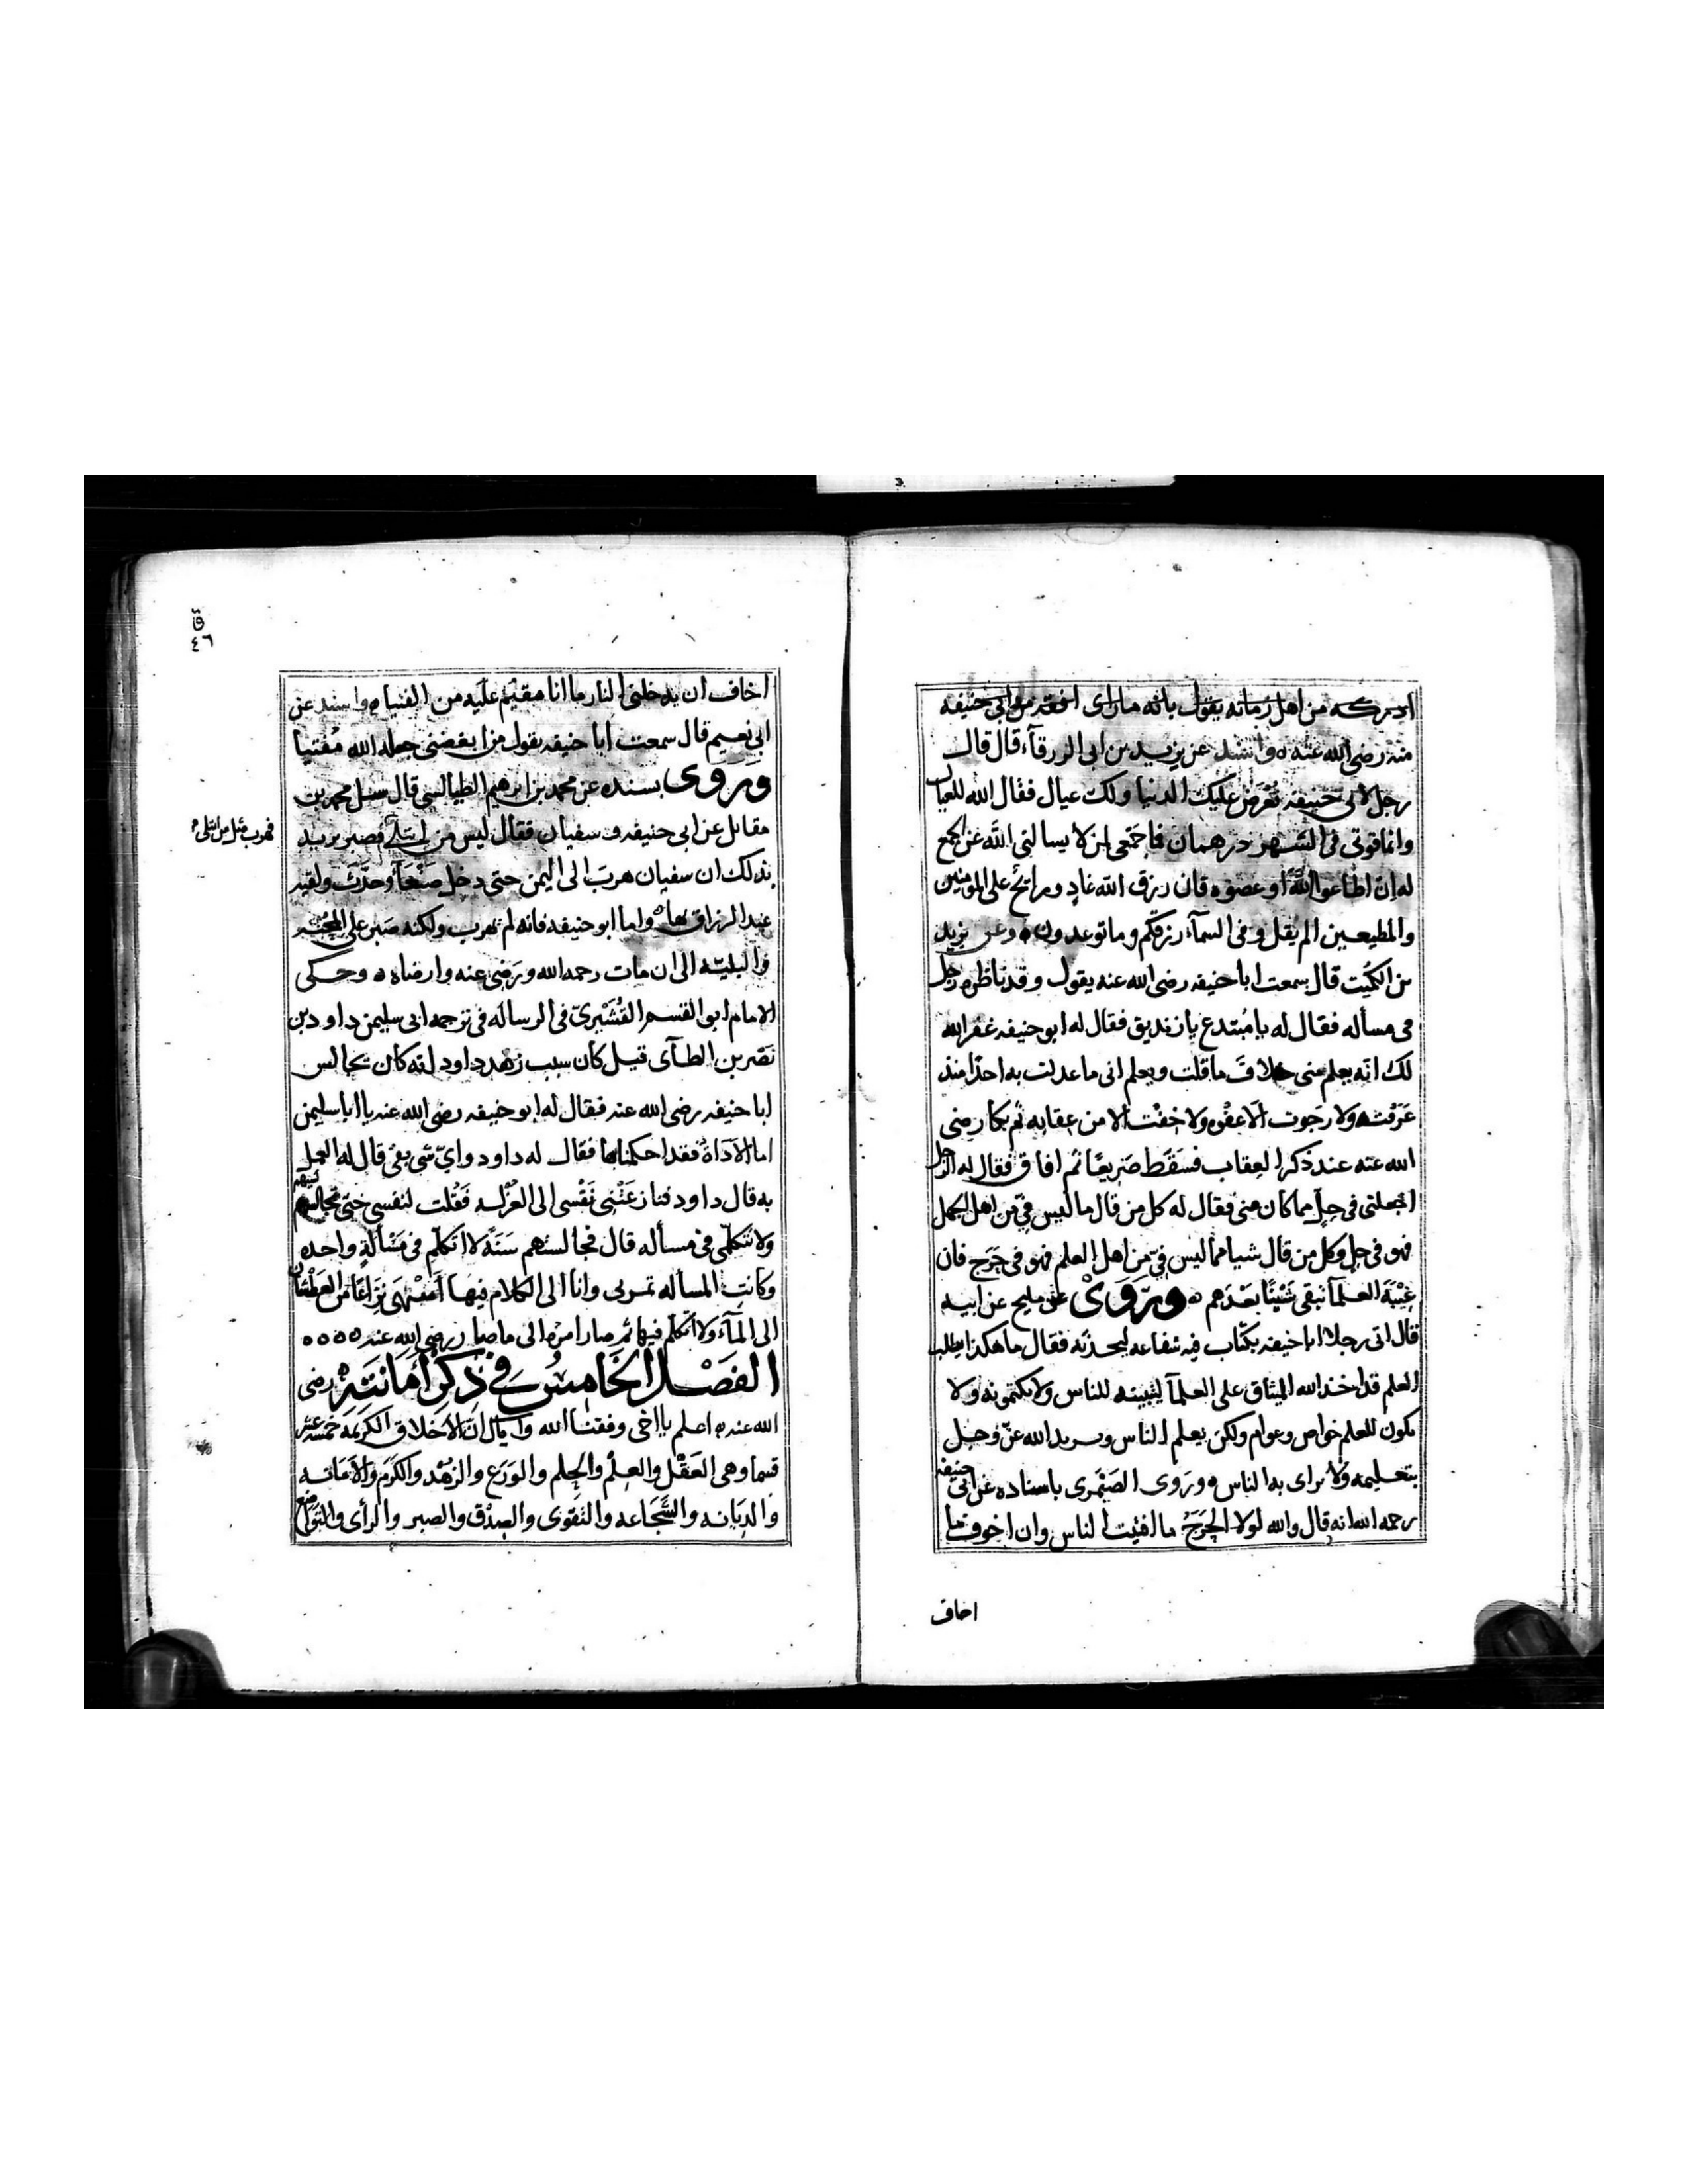 ادركه من اهل زمانه يقول بانه ما راى افقه من ابي حنيفه
منه رضي الله عنه ه واسند عن يزيد بن ابي الزرقاء قال قال
رجل لابي حنيفه تعرض عليك الدنيا ولك عيال فقال الله للعيال
وانما قوتي في الشهر درهمان فاجمعي لمن لا يسالني الله عن الجمع
له ان اطاعوا الله او عصوه فان رزق الله غادٍ ورائح على المؤمنين
والمطيعين الم يقل وفي السمآء رزقكم وما توعدون ه وعن يزيد
بن الكميت قال سمعت ابا حنيفه رضي الله عنه يقول وقد ناظره رجل
في مسأله فقال له يا مُبتدع يا زنديق فقال له ابو حنيفه غفر الله
لك انه يعلم مني خلاف ما قلت ويعلم اني ما عدلت به احدًا منذ
عَرَفته ولا رجوت الا عفوه ولا خِفت الا من عقابه ثم بكا رضي
الله عنه عند ذكر العِقاب فسَقَط صَرِيعًا ثم افاق فقال له الرجل
اجعلني في حِلٍّ مما كان مني فقال له كل من قال ما ليس فيّ من اهل الجهل
فهو في حل وكل من قال شيا مما ليس فيّ من اهل العلم فهو في حَرَج فان
غِيْبَة العلمآ تبقي شَيْنًا بَعْدَهم ه ورَوَىْ عن مليح عن ابيه
قال اتى رجلا ابا حنيفه بكتاب فيه شفاعه ليحدثه فقال ما هكذا يطلب
العلم قد اخذ الله الميثاق على العلمآ ليبينه للناس ولا يكتمونه ولا
يكون للعلم خواص وعوام ولكن يعلم الناس ويريد الله عزّ وجل
بتعليمه ولا يراى به الناس ه ورَوى الصَيْمَرى باسناده عن ابي حنيفه
رحمه الله انه قال والله لولا الحَرَجُ ما افتيت الناس وان اخوف ما
اخاف
ق
٤٦
اخاف ان يدخلني النار ما انا مقيم عليه من الفتيا ه واسند عن
ابي نعيم قال سمعت أبا حنيفه يقول من ابغضني جعله الله مُفتيا
ورَوى بسنده عن محمد بن ابرهيم الطيالسي قال سئل محمد بن
مقاتل عن ابي حنيفه وسفيان فقال ليس من ابتلي فصبر يريد
فهرب مثل من ابتلي
بذلك ان سفيان هرب الى اليمن حتى دخل صَنْعَآ وحدّث ولقيه
عبد الرزاق بها ه واما ابو حنيفه فانه لم يهرب ولكنه صَبر على المحنه
والبليّه الى ان مات رحمه الله ورَضي عنه وارضاه ه وحكى
الامام ابو القسم القُشَيْريّ في الرساله في ترجمه ابي سليمن داود بن
نَصْر بن الطآى قيل كان سبب زهد داود انه كان يجالس
ابا حنيفه رضي الله عنه فقال له ابو حنيفه رضي الله عنه يا ابا سليمن
اما الأداة فقد احكمناها فقال له داود وايّ شي بقى قال له العمل
به قال داود فنازعَتْني نَفْسى الى العُزْله فقُلت لنفسي حتى تجالسيهم
ولا تتكلّمي في مسأله قال فجالستهم سَنَةً لا اتكلّم في مَسْألةٍ واحده
وكانت المسأله تمر بي وانا الى الكلام فيها اشهى نِزَاعًا من العَطْشان
الى المآء ولا أتكلم فيها ثم صار امره الى ما صار رضي الله عنه ه ه ه ه
الفَصْل الخَامِسُ في ذِكْرِ أَمَانَتِهِ رضى
الله عنه ه اعلم يا اخى وفقنا الله واياك انّ الاخلاق الكريمَه خمسه عشر
قسما وهى العَقْل والعِلْم والحِلم والوَرَع والزُهْد والكَرَم والأمَانه
والدِيَانه والشَّجَاعه والتقوى والصِدْق والصبر والرأى والتواضع